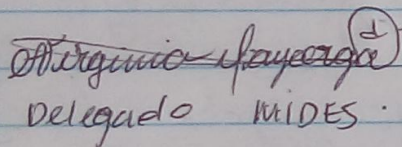 Virginia Mayorga
Delegado MIDES.